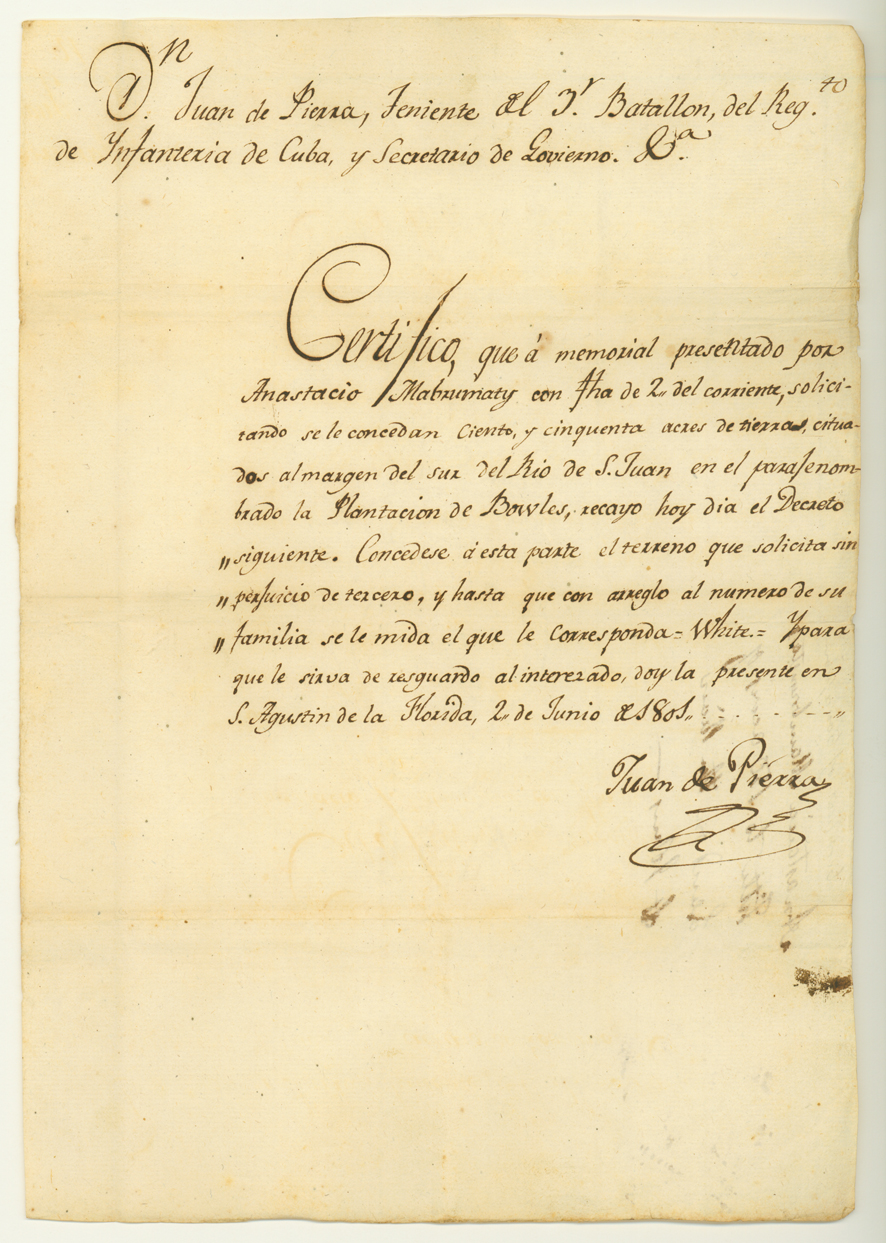 Dn. Juan de Pierra, Teniente del 3r. Batallon, del Reg.to
de Ynfanteria de Cuba, y Secretario de Govierno. &.a
Certifico, que á memorial presentado por
Anastacio Mabrumaty con fha de 2,, del corriente, solici-
tando se le concedan Ciento, y cinquenta acres de tierras, citua-
dos al margen del sur del Rio de S. Juan en el parase nom-
brado la Plantacion de Bowles, recayo hoy dia el Decreto
,, siguiente. Concedese á esta parte el terreno que solicita sin
,, persuicio de tercero, y hasta que con arreglo al numero de su
,, familia se le mida el que le Corresponda = White. = Y para
que le sirva de resguardo al interezado, doy la presente en
S. Agustin de la Florida, 2,, de Junio de 1801,,
Juan de Pierra